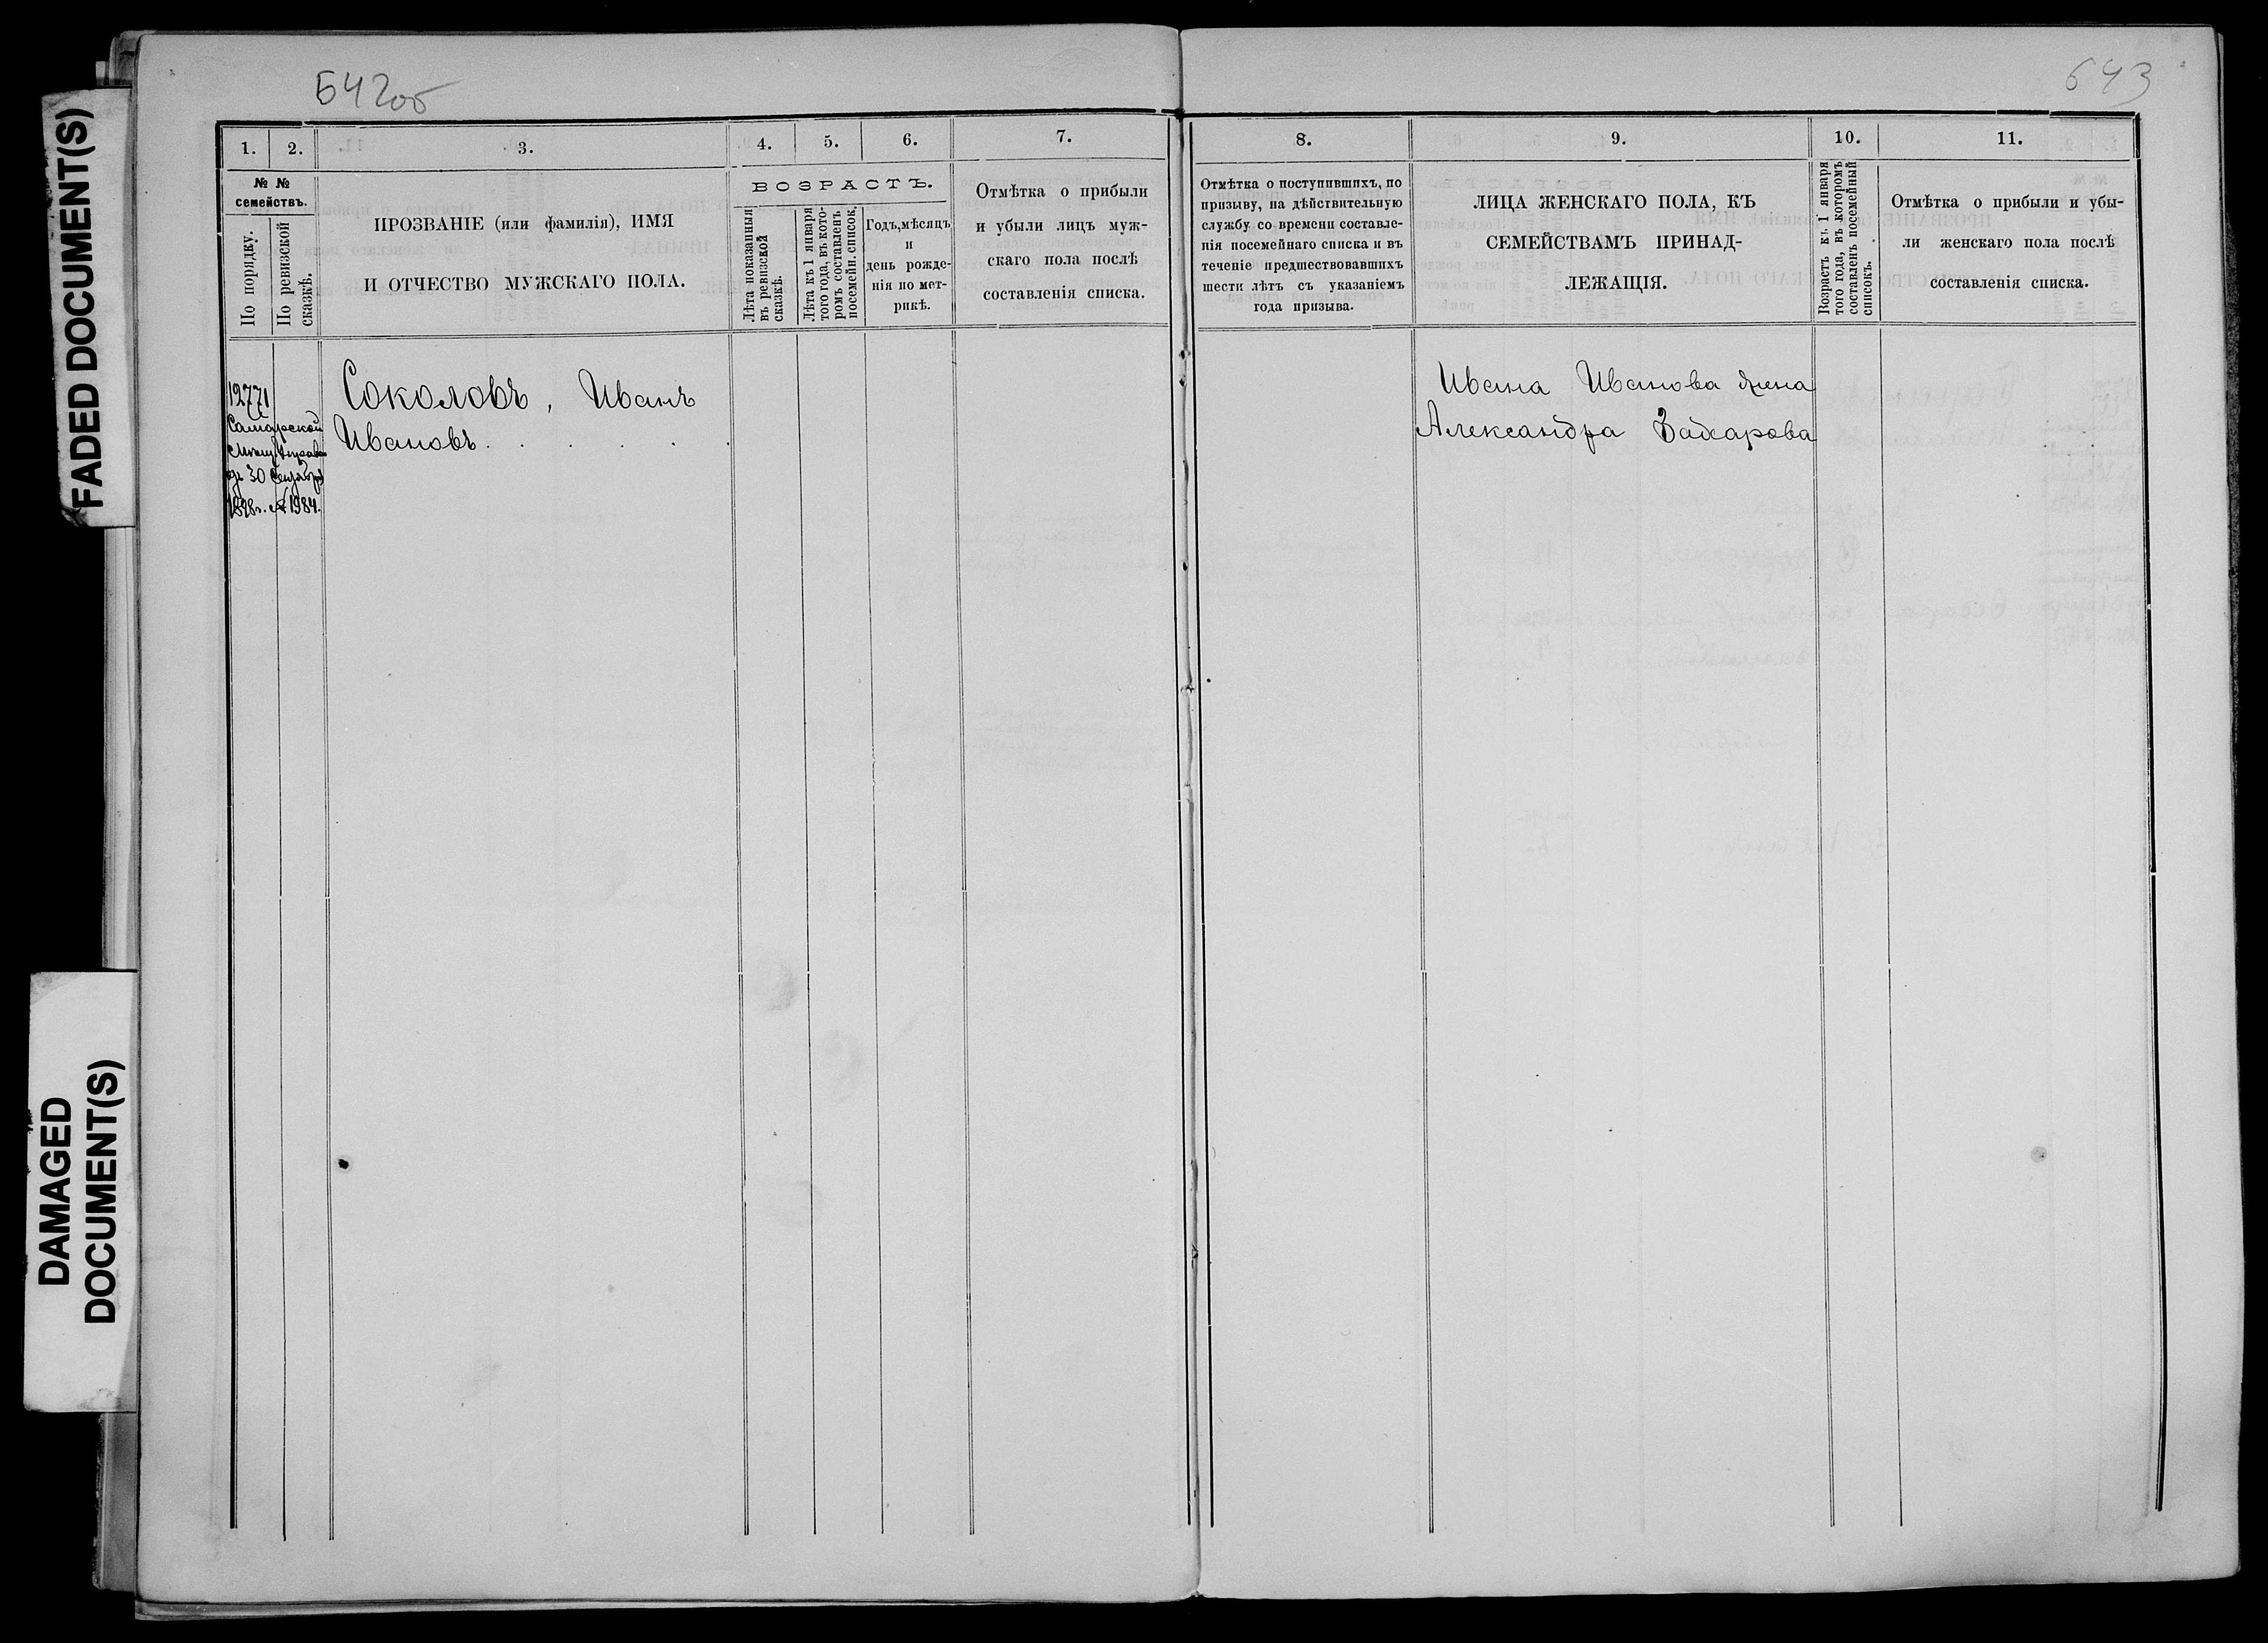 FADED DOCUMENT(S)
DAMAGED
DOCUMENT(S)
642об
1.
2.
3.
4.
5.
6.
7.
№ №
семействъ.
По порядку.
По ревизской
сказкѣ.
ПРОЗВАНІЕ (или фамилія), ИМЯ
И ОТЧЕСТВО МУЖСКАГО ПОЛА.
ВОЗРАСТЪ.
Лѣта показанныя
въ ревизской
сказкѣ.
Лѣта къ 1 января
того года, въ кото-
ромъ составленъ
посемейн. список.
Годъ, мѣсяцъ
и
день рожде-
нія по мет-
рикѣ.
Отмѣтка о прибыли
и убыли лицъ муж-
скаго пола послѣ
составленія списка.
12771
Самарской
Мѣщ. Управы
отъ 30 Сентября
1898г. № 1984.
Соколовъ, Иванъ
Ивановъ . . . . .
643
8.
9.
10.
11.
Отмѣтка о поступившихъ, по
призыву, на дѣйствительную
службу со времени составле-
нія посемейнаго списка и въ
теченіе предшествовавшихъ
шести лѣтъ съ указаніемъ
года призыва.
ЛИЦА ЖЕНСКАГО ПОЛА, КЪ
СЕМЕЙСТВАМЪ ПРИНАД-
ЛЕЖАЩІЯ.
Возрастъ къ 1 января
того года, въ которомъ
составленъ посемейный
списокъ.
Отмѣтка о прибыли и убы-
ли женскаго пола послѣ
составленія списка.
Ивана Иванова жена
Александра Захарова